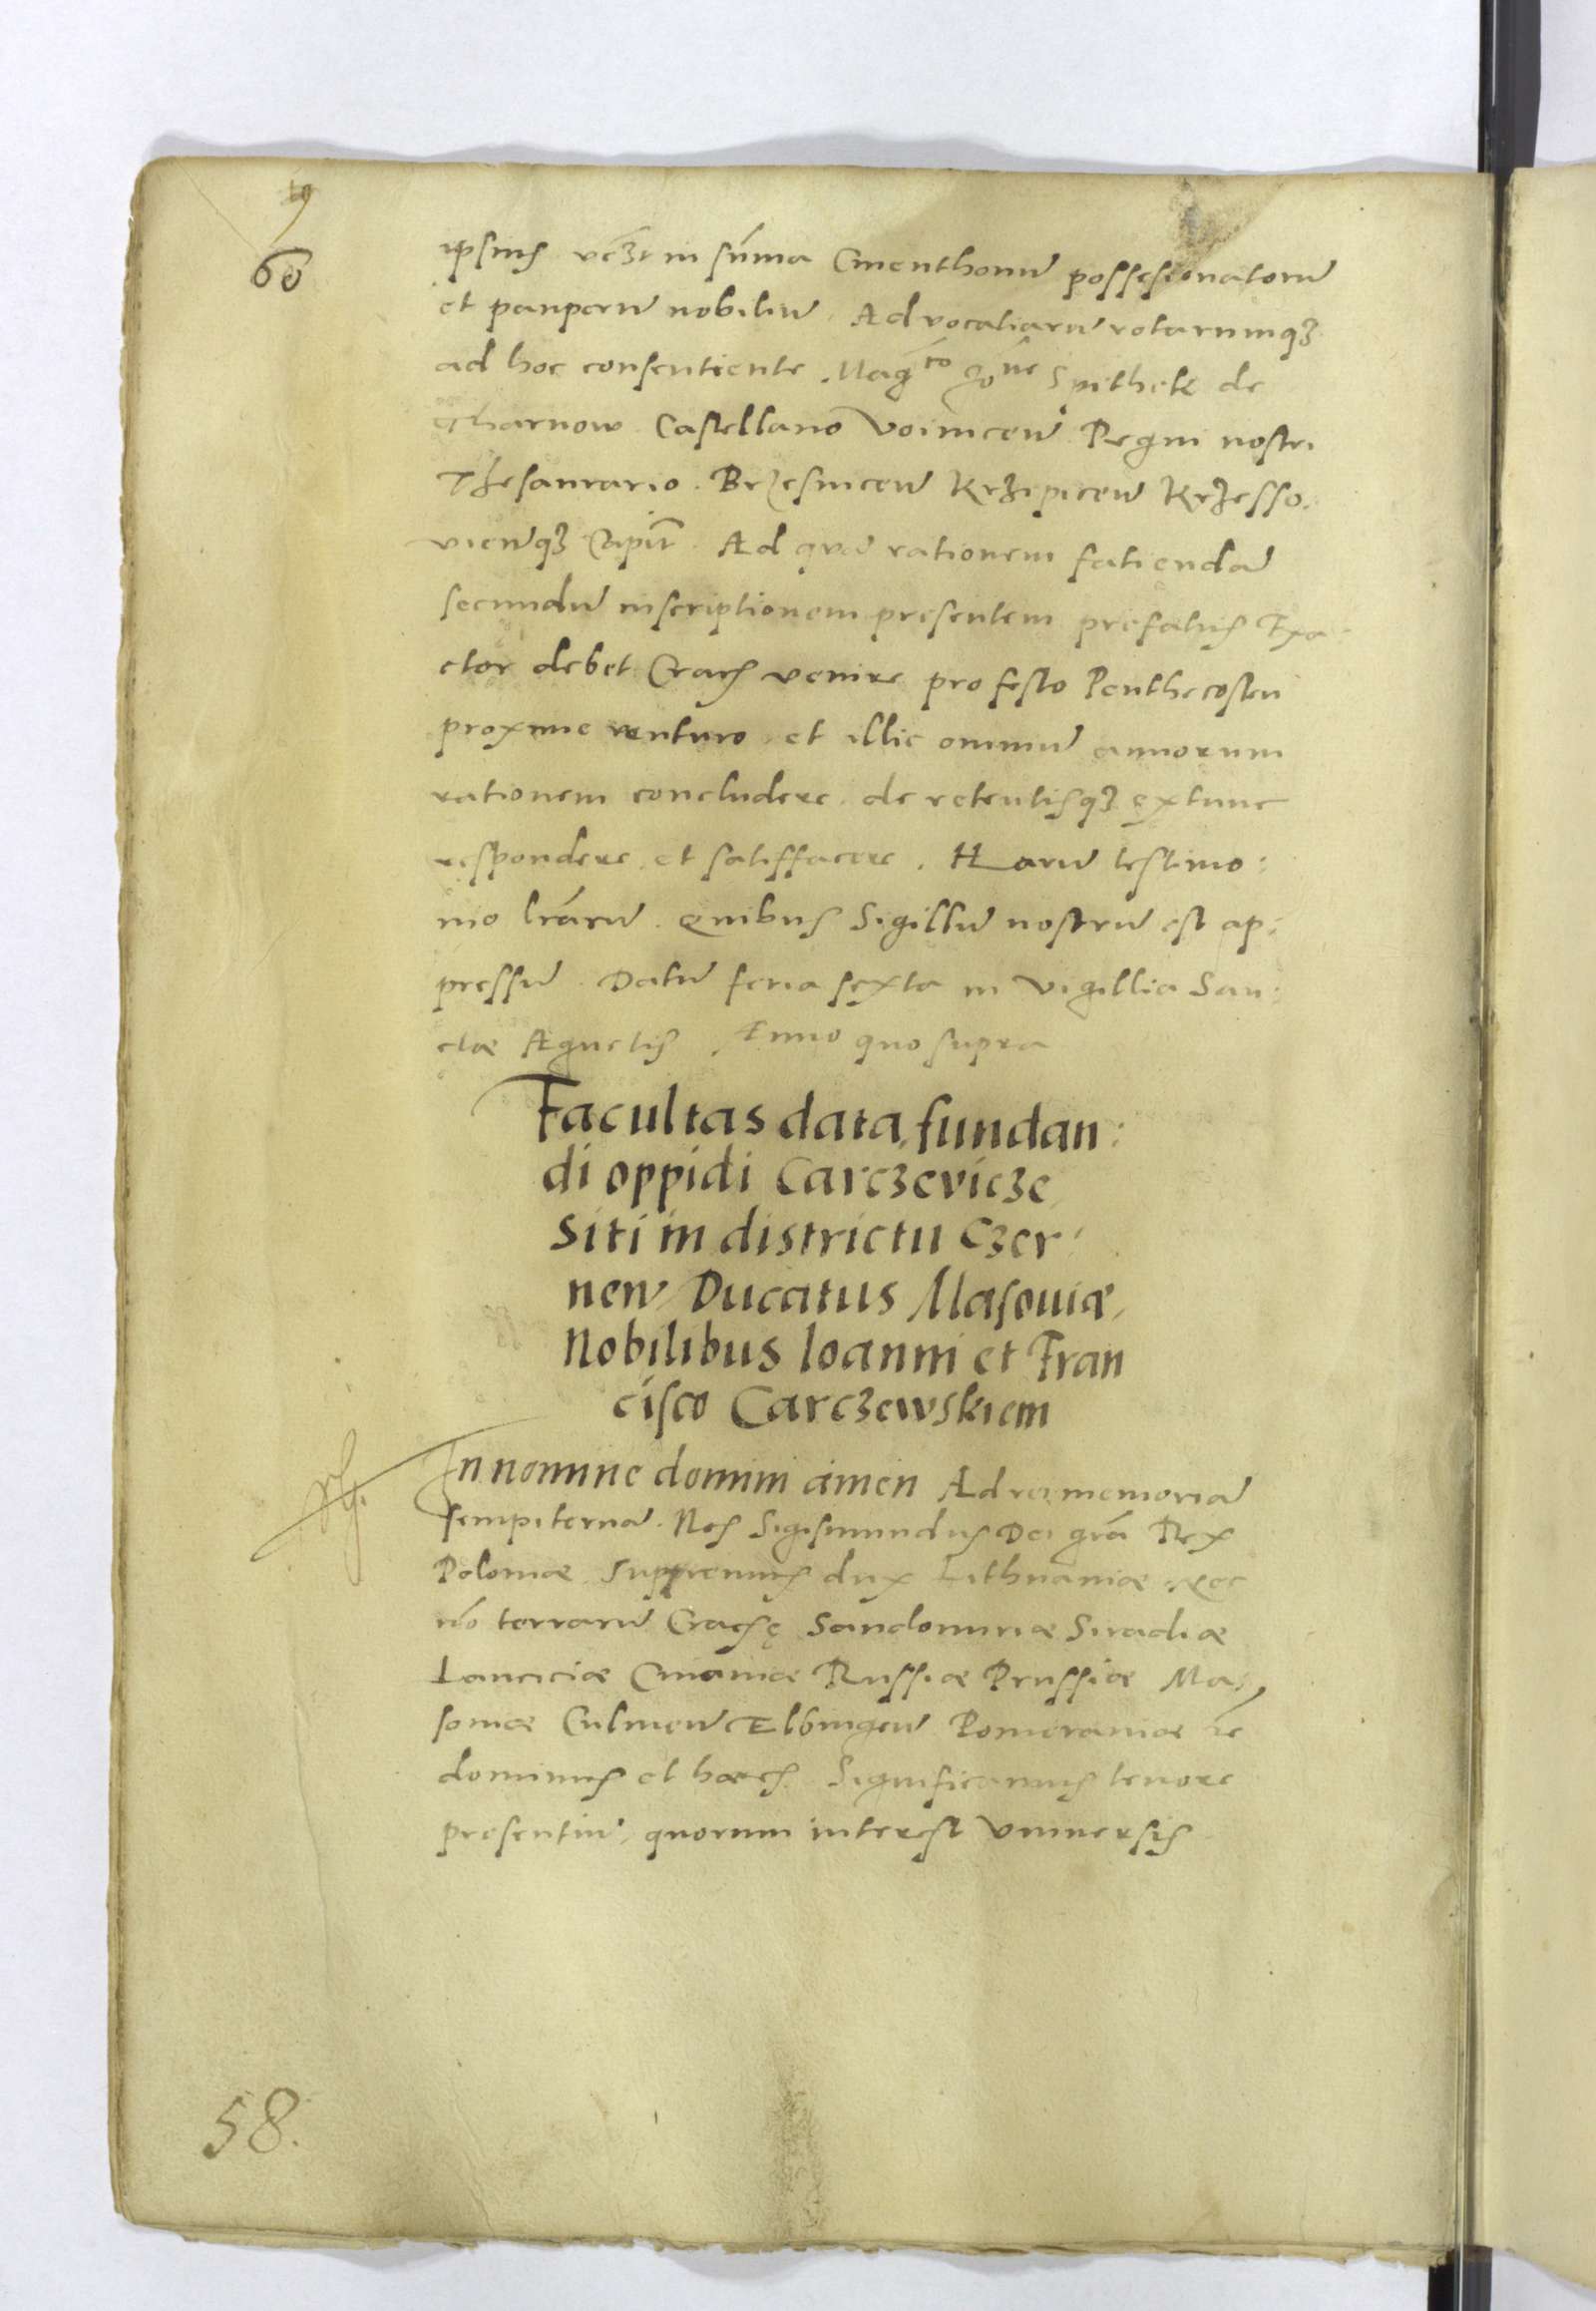 60
ipsius veȝt in sūma Cmenthonū possessionatorū
et pauperū nobiliū. Advocatiarū rotarumqȝ
ad hoc consentiente. Magᶜᵒ gōne Spithek de
Tharnow Castellano Voinicen̄ Regni nostri
Thesaurario. Brzesnicen̄ Krzipicen̄ Krzesso.
vicen̄qȝ Capit̄. Ad quā rationem fatiendā
secundū inscriptionem presentem prefatus Exa:
ctor debet Crac̄ venire pro festo Penthecosten
proxime venturo et illic omniū annorum
rationem concludere. de retentisqȝ extunc
respondere et satisffacere. Harū testimo:
nio lr̄arū. Quibus Sigillū nostrū est ap:
pressū. Datū feria sexta in vigillia San:
ctæ Agnetis. Anno quo supra
Facultas data fundan:
di oppidi Carczevicze
siti in districtu Czer:
nen̄ Ducatus Masouiæ
Nobilibus Ioanni et Fran
cisco Carczewskiem
In nomine domini amen Ad rei memoriā
sempiternā. Nos Sigismundus Dei grā Rex
Poloniæ Suppremus dux Lithuaniæ. nec
nō terrarū Crac̄ę Sandomiriæ Siradiæ
Lanciciæ Cuiauiæ Russiæ Prussiæ Ma:
souiæ Culmen̄ Elbingen̄ Pomeraniæ zc̄
dominus et hæres. Significamus tenore
presentiū. quorum interest Vniuersis
58.